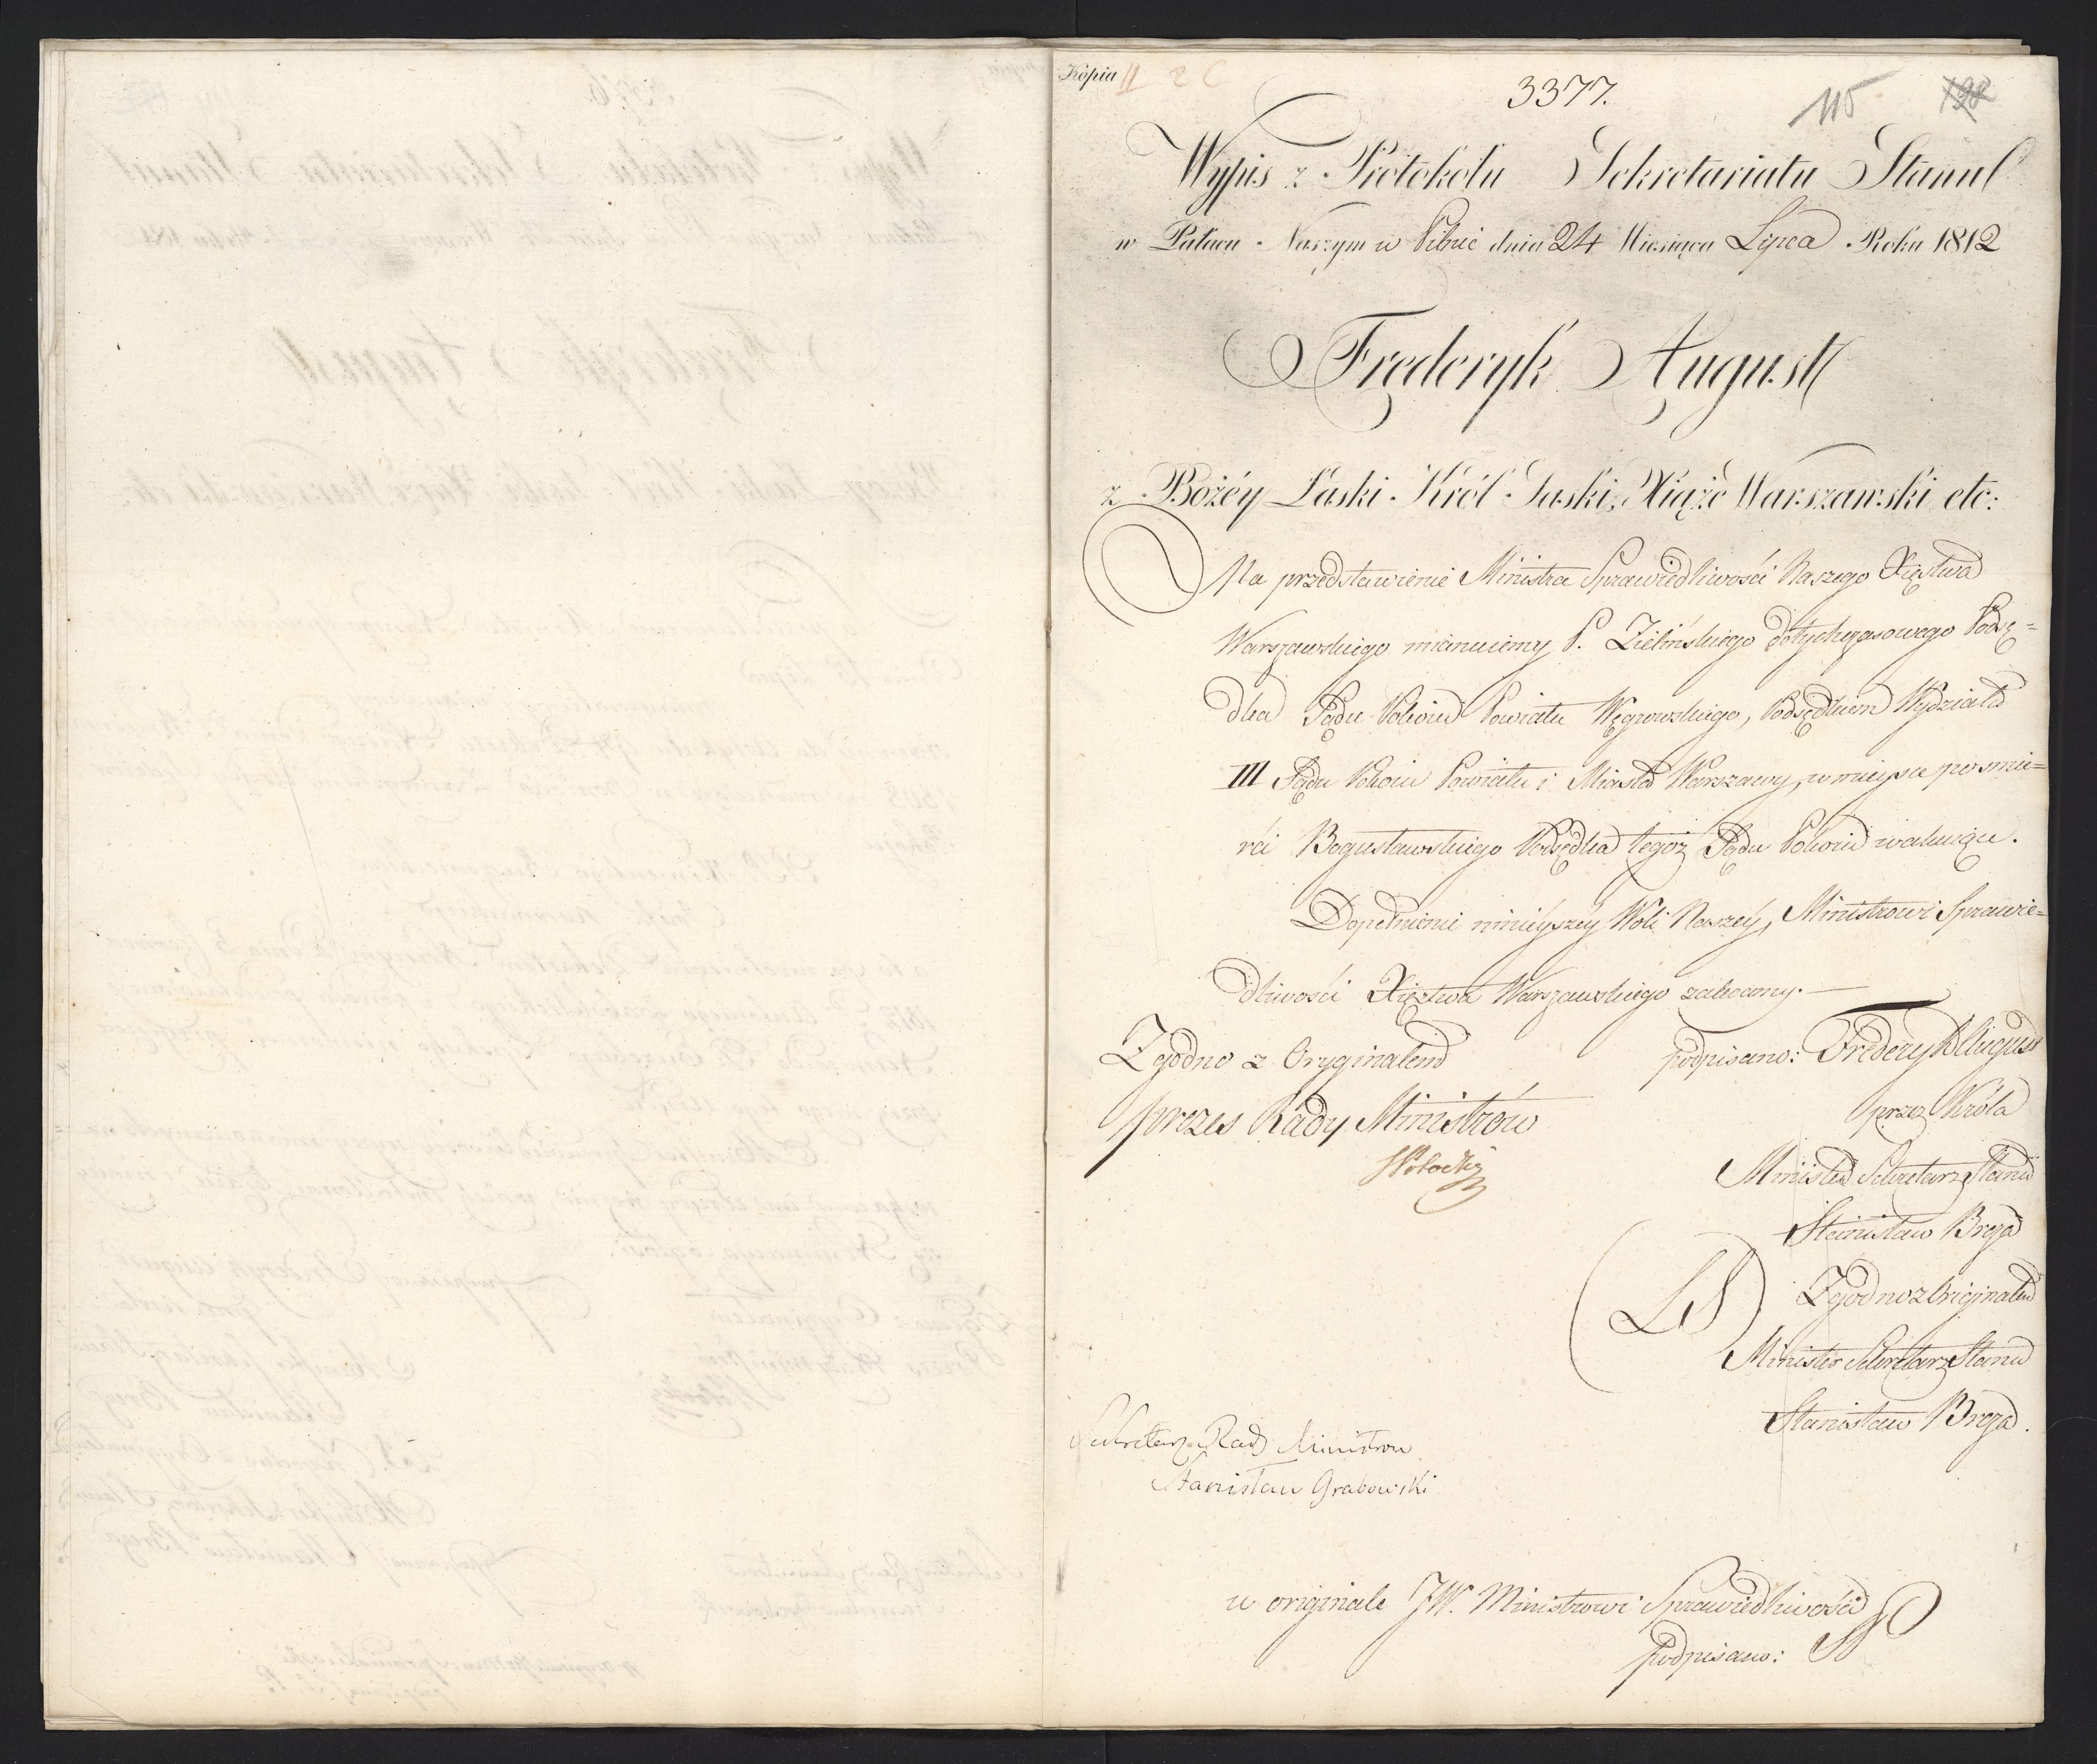 Kopia II 2 C
3377.
115 198
Wypis z Protokołu Sekretariatu Stanu
w Pałacu Naszym w Pilnic dnia 24 Miesiąca Lipca Roku 1812
Frederyk August
z Bożéy Łaski Król Saski, Xiążę Warszawski etc:
Na przedstawienie Ministra Sprawiedliwości Naszego Xięstwa
Warszawskiego mianuiemy P. Zielińskiego dotychczasowego Podsę=
dka Sądu Pokoiu Powiatu Węgrowskiego, Podsędkiem Wydziału
III Sądu Pokoiu Powiatu i Miasta Warszawy, w mieysce po śmie=
rci Bogusławskiego Podsędka tegoż Sądu Pokoiu wakuiące.
Dopełnienie ninieyszey Woli Naszey, Ministrowi Sprawie=
dliwości Xięztwa Warszawskiego zalecamy.—
Zgodno z Oryginałem
podpisano: Frederyk August
prezes Rady Ministrów
przez Króla
SPotocki
Minister Sekretarz Stanu
Stanisław Breza
(LS) Zgodno z Originałem
Minister Sekretarz Stanu
Stanisław Breza.
Sekretarz Rady Ministrow
Stanisław Grabowski
w originale JW. Ministrowi Sprawiedliwości
podpisano: